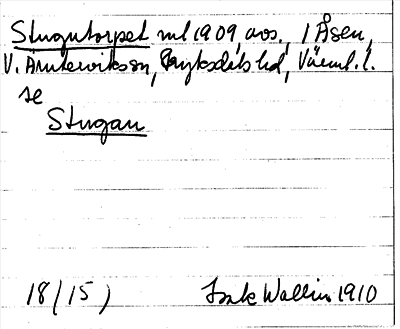 Stugutorpet ml 1909, avs., 1 Åsen,
V. Ämterviks sn, Fryksdals hd, Värml. l.
se
Stugan
18 (15) Isak Wallin 1910